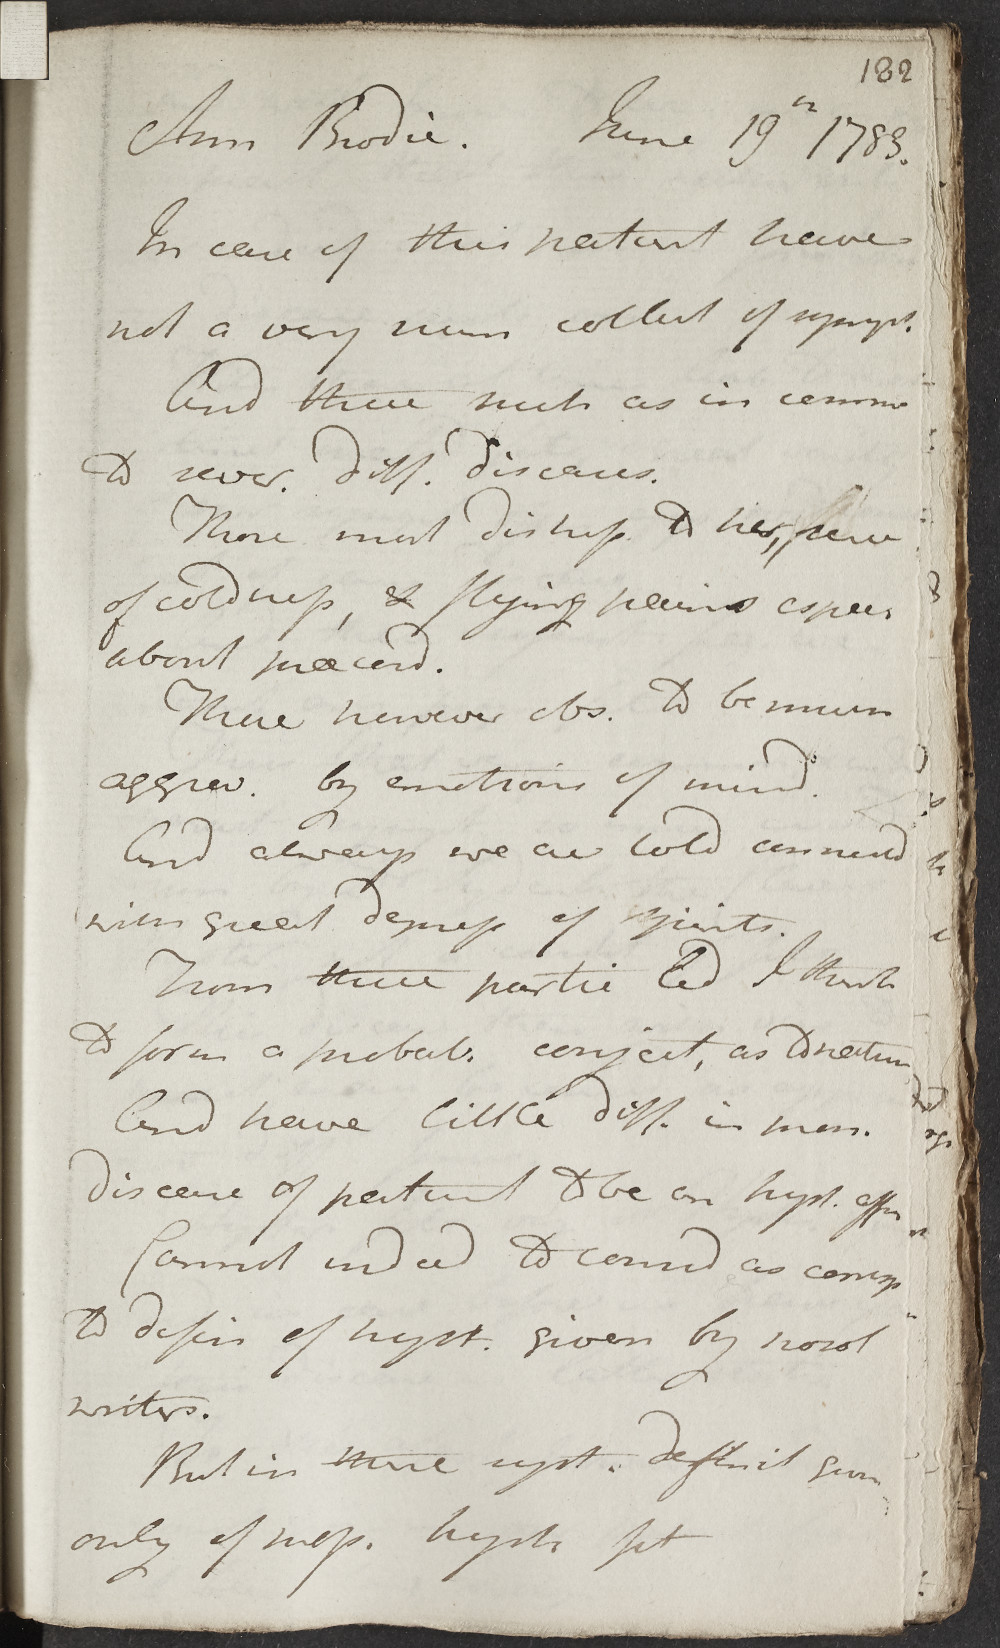 182
Ann Brodie. June 19th 1783.
In case of this patient have
not a very num collect of sympt.
And these such as in comm
to sever. diff. diseases.
Those most distress to her, sense
of coldness, & flying pains espec
about præcord.
These however obs. to be much
aggrav. by emotions of mind.
And always we are told connected
with great depress of spirits.
From these partic led I think
to form a probab. conject, as to nature
And have little diff. in pron.
disease of patient to be an hyst. affec
Cannot indeed to consid as corresp
to defin of hyst. given by nosol
writers.
But in these syst. definit given
only of hyst. fit